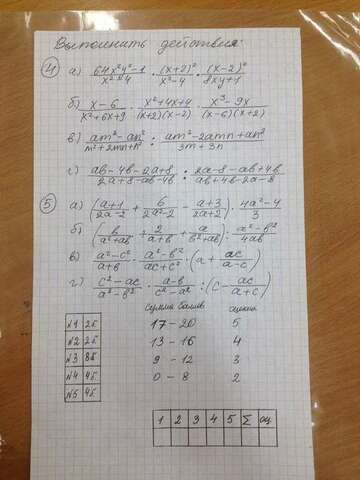 Выполнить действия:
4 а) (64x²y²-1)/(x²-4) · (x+2)²/(x²-4) · (x-2)²/(8xy+1)
б) (x-6)/(x²+6x+9) · (x²+4x+4)/((x+2)(x-2)) · (x³-9x)/((x-6)(x+2))
в) (am²-an²)/(m²+2mn+n²) : (am²-2amn+an²)/(3m+3n)
г) (ab-4b-2a+8)/(2a+8-ab-4b) : (2a-8-ab+4b)/(ab+4b-2a-8)
5 а) ((a+1)/(2a-2) + 6/(2a²-2) - (a+3)/(2a+2)) · (4a²-4)/3
б) (b/(a²+ab) + 2/(a+b) + a/(b²+ab)) : (a²-b²)/(4ab)
в) (a²-c²)/(a+b) · (a²-b²)/(ac+c²) · (a + ac/(a-c))
г) (c²-ac)/(a²-b²) · (a-b)/(c²-a²) : (c - ac/(a+c))
сумма баллов оценка
№1 2б 17-20 5
№2 2б 13-16 4
№3 8б 9-12 3
№4 4б 0-8 2
№5 4б
1 2 3 4 5 Σ оц